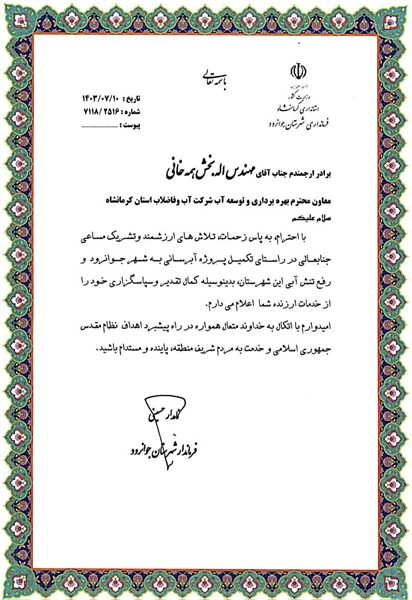 باسمه تعالی
وزارت کشور
استانداری کرمانشاه
فرمانداری شهرستان جوانرود
تاریخ: ۱۴۰۳/۰۷/۱۰
شماره: ۷۱۱۸/۲۵۱۶
پیوست:
برادر ارجمندم جناب آقای مهندس اله بخش همه خانی
معاون محترم بهره برداری و توسعه آب شرکت آب وفاضلاب استان کرمانشاه
سلام علیکم
با احترام، به پاس زحمات، تلاش های ارزشمند وتشریک مساعی
جنابعالی در راستای تکمیل پروژه آبرسانی به شهر جوانرود و
رفع تنش آبی این شهرستان، بدینوسیله کمال تقدیر وسپاسگزاری خود را
از خدمات ارزنده شما اعلام می دارم.
امیدوارم با اتکال به خداوند متعال همواره در راه پیشبرد اهداف نظام مقدس
جمهوری اسلامی و خدمت به مردم شریف منطقه، پاینده و مستدام باشید.
حسینی
فرماندار شهرستان جوانرود